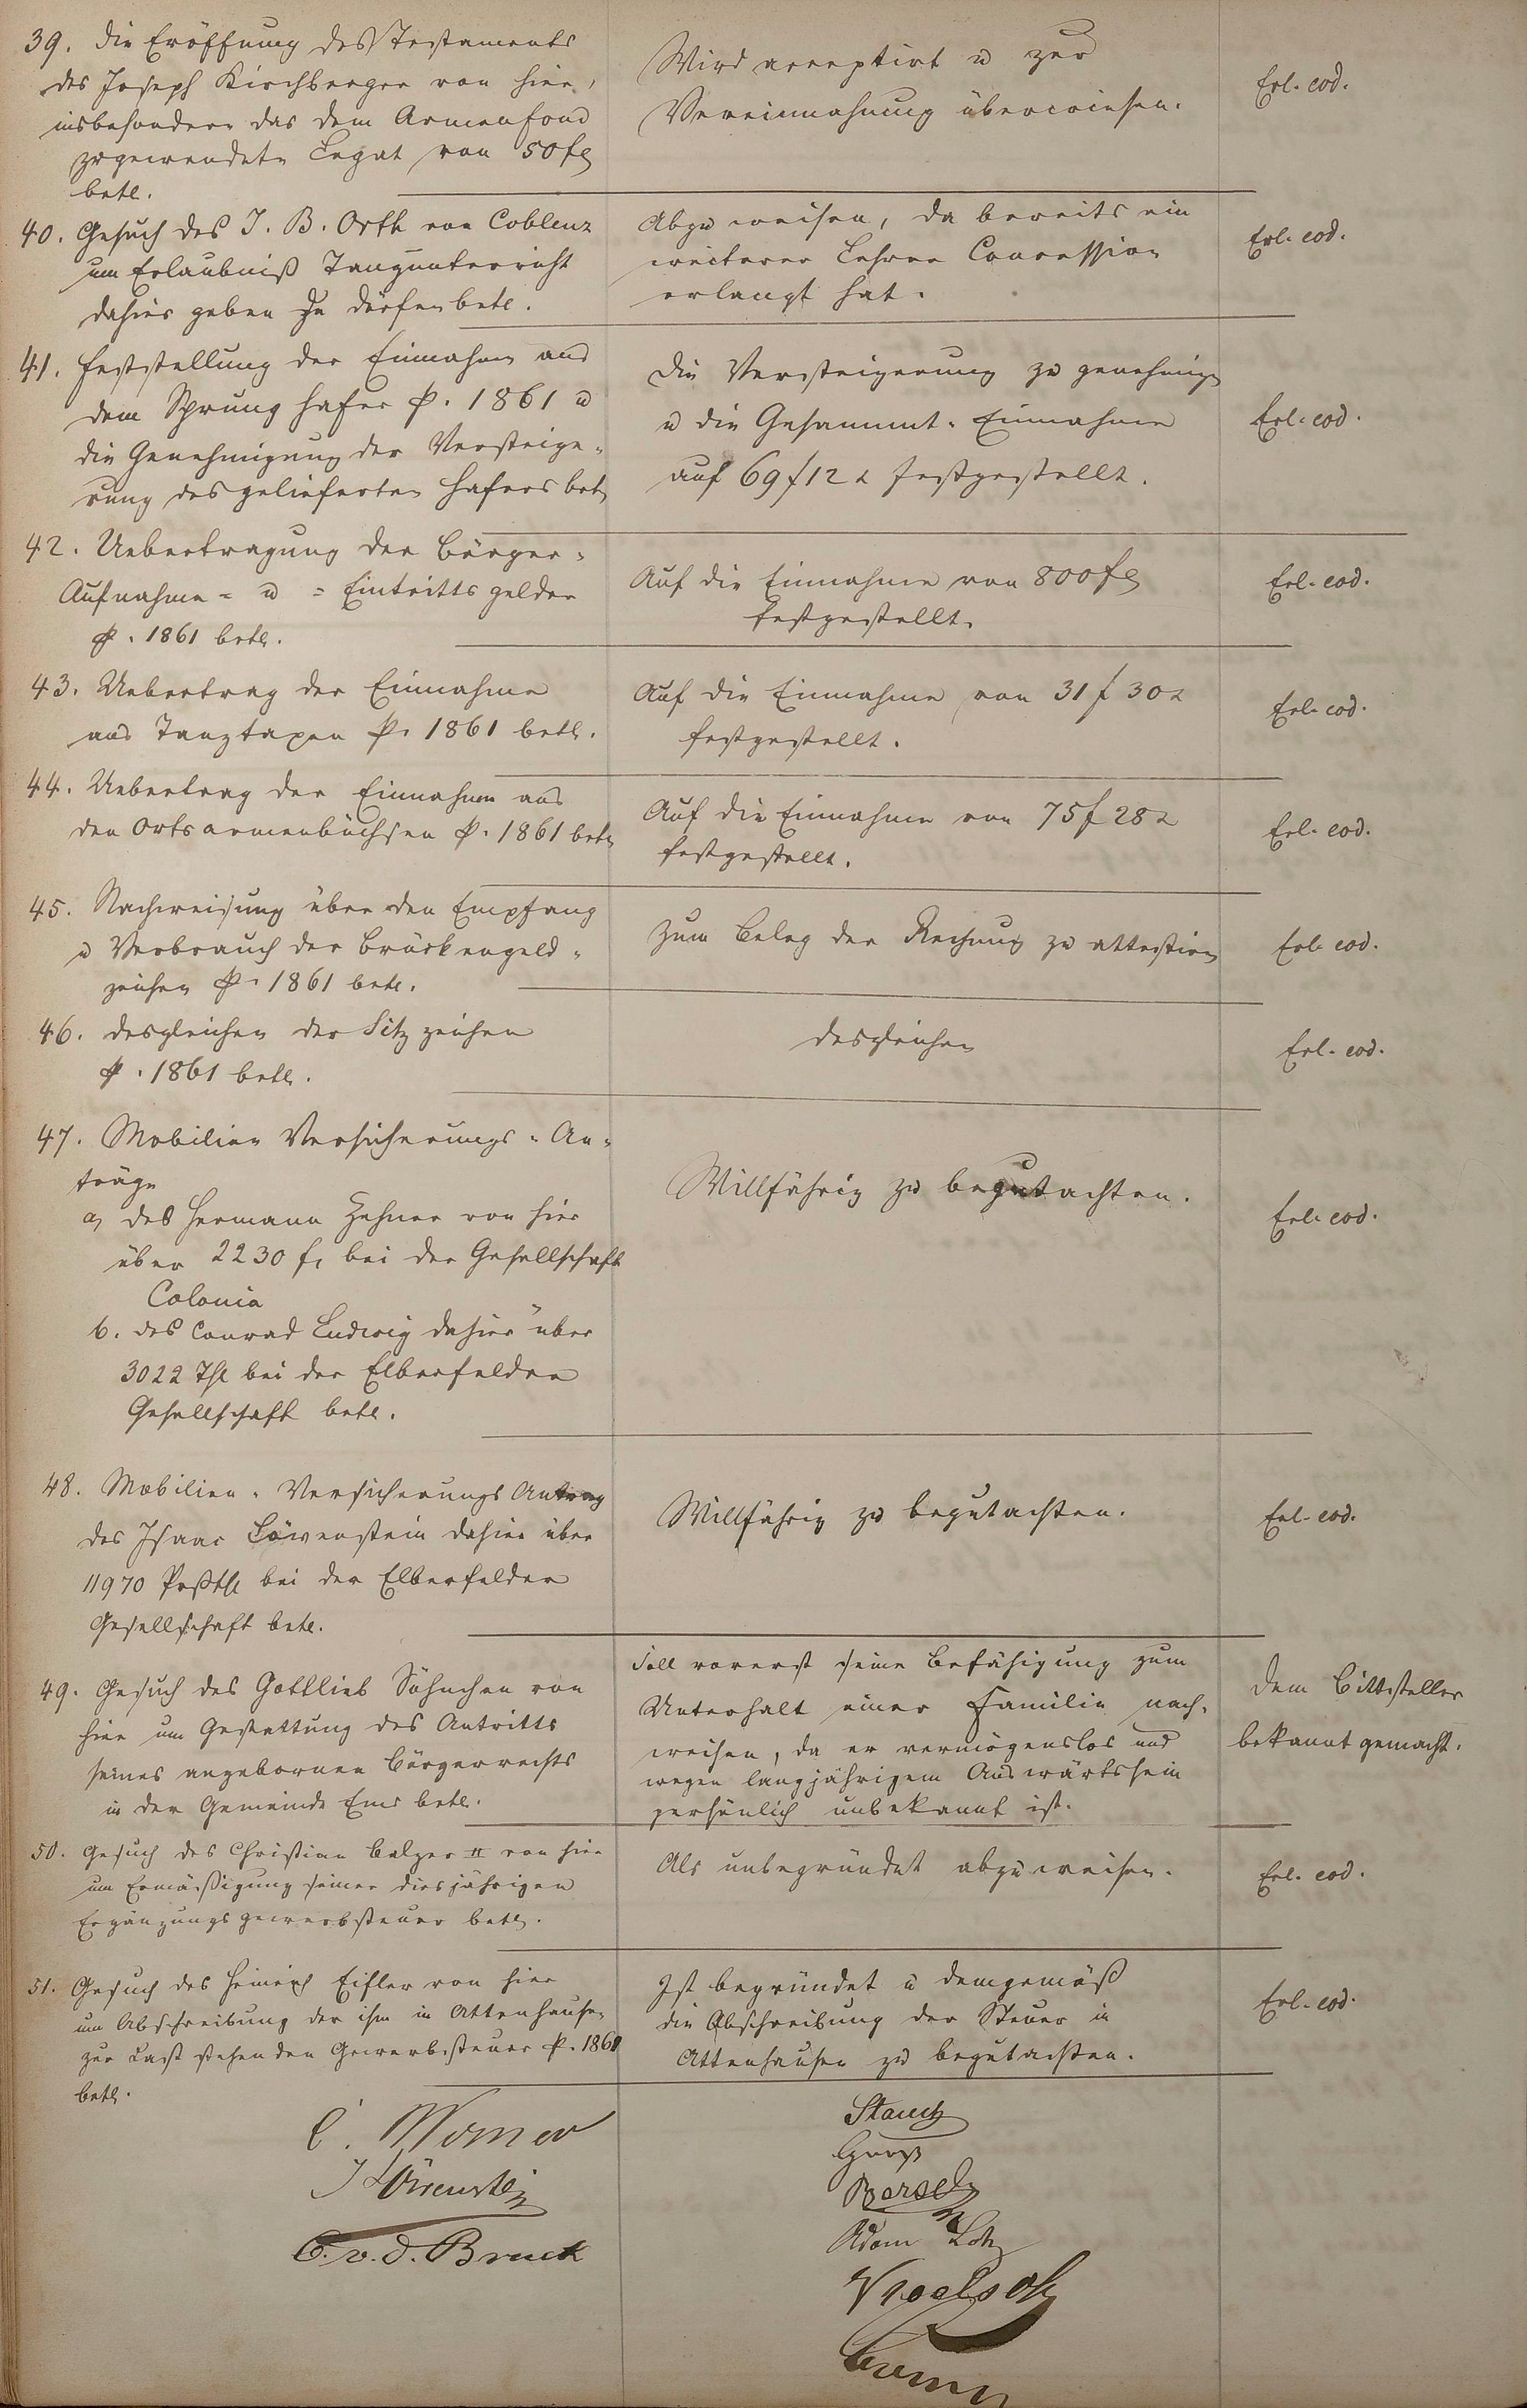 39. die Eröffnung des Testaments
des Joseph Kirchberger von hier,
insbesondere das dem Armenfond
zugewendete Legat von 50 fl
betr.
Wird acceptirt u zur
Vereinnahmung überwiesen.
Erl. eod.
40. Gesuch des J. B. Orth von Coblenz
um Erlaubniß Tanzunterricht
dahier geben zu dürfen betr.
Abzuweisen, da bereits ein
weiterer Lehrer Concession
erlangt hat.
Erl. eod.
41. Feststellung der Einnahme aus
dem Sprunghafer p. 1861 u
die Genehmigung der Versteige-
rung des gelieferten Hafers betr
die Versteigerung zu genehmigen
u die Gesammt-Einnahme
auf 69 f 12 x festgestellt.
Erl. eod.
42. Uebertragung der Bürger-
Aufnahme- u -Eintrittsgelder
p. 1861 betr.
Auf die Einnahme von 800 fl
festgestellt.
Erl. eod.
43. Uebertrag der Einnahme
aus Tanztaxen p. 1861 betr.
Auf die Einnahme von 31 f 30 x
festgestellt.
Erl. eod.
44. Uebertrag der Einnahme aus
den Ortsarmenbüchsen p. 1861 betr
Auf die Einnahme von 75 f 28 x
festgestellt.
Erl. eod.
45. Nachweisung über den Empfang
u Verbrauch der Brückengeld-
zeichen p. 1861 betr.
Zum Beleg der Rechnung zu attestiren
Erl. eod.
46. desgleichen der Sitzzeichen
p. 1861 betr.
desgleichen
Erl. eod.
47. Mobilien Versicherungs-An-
träge
a, des Hermann Zehner von hier
über 2230 f, bei der Gesellschaft
Colonia
b. des Conrad Ludwig dahier über
3022 Thl bei der Elberfelder
Gesellschaft betr.
Willfährig zu begutachten.
Erl. eod.
48. Mobilien-Versicherungs Antrag
des Isaac Löwenstein dahier über
11970 Prßthl bei der Elberfelder
Gesellschaft betr.
Willfährig zu begutachten.
Erl. eod.
49. Gesuch des Gottlieb Söhnchen von
hier um Gestattung des Antritts
seines angebornen Bürgerrechts
in der Gemeinde Ems betr.
Soll vorerst seine Befähigung zum
Unterhalt einer Familie nach-
weisen, da er vermögenslos und
wegen langjährigem Auswärtssein
persönlich unbekannt ist.
dem Bittsteller
bekannt gemacht.
50. Gesuch des Christian Balzer II von hier
um Ermäßigung seiner diesjährigen
Ergänzungsgewerbsteuer betr.
Als unbegründet abzuweisen.
Erl. eod.
51. Gesuch des Heinrich Eifler von hier
um Abschreibung der ihm in Attenhausen
zur Last stehenden Gewerbsteuer p. 1861
betr.
Ist begründet u demgemäß
die Abschreibung der Steuer in
Attenhausen zu begutachten.
Erl. eod.
J Löwenstein
C. v. d. Bruck
Adam